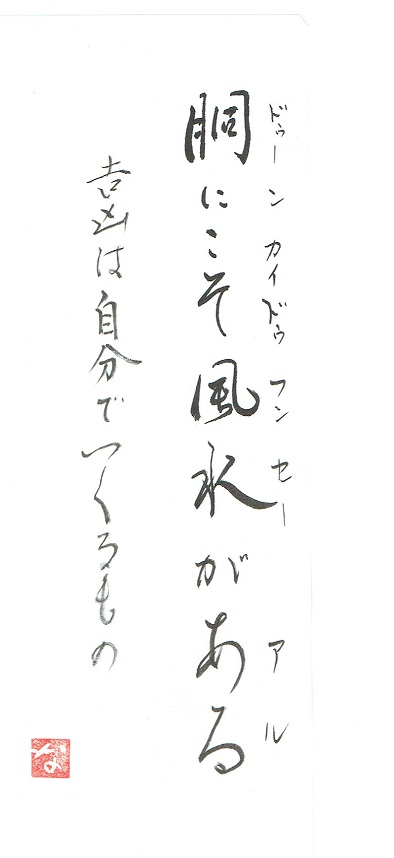 ドゥーン カイドゥ フンセー アル
胴にこそ風水がある
吉凶は自分でつくるもの
な